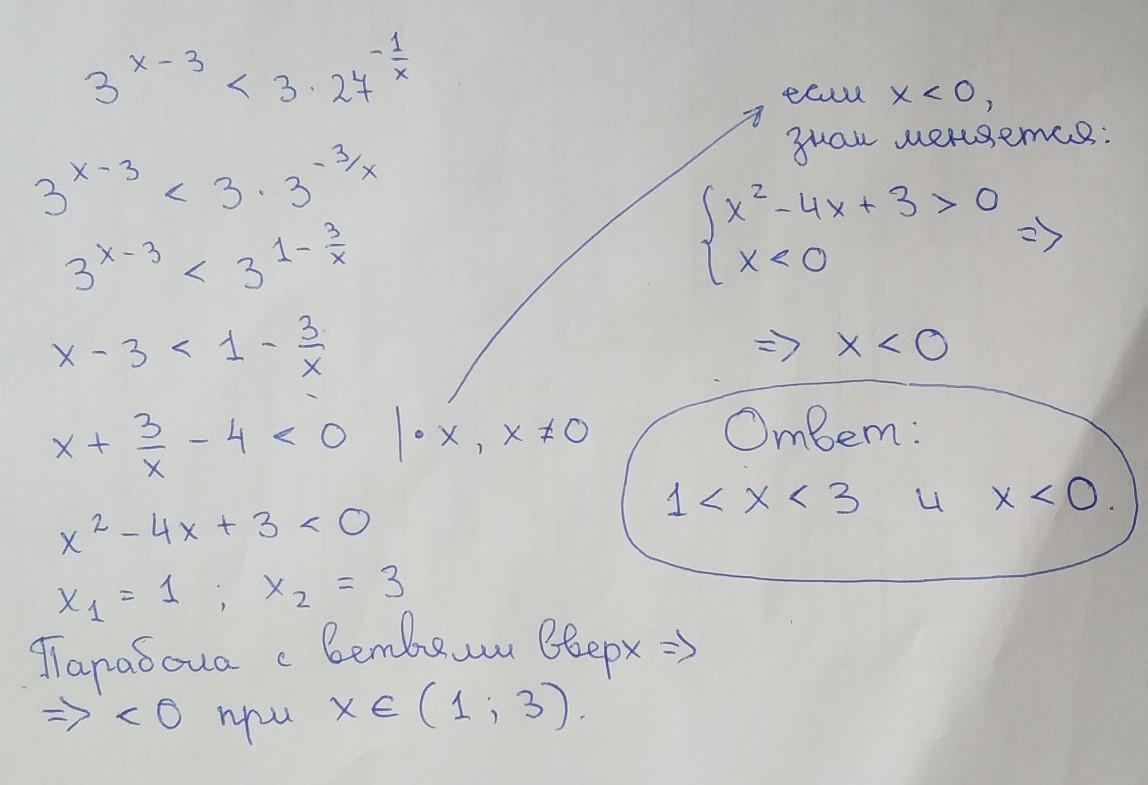 3^{x-3} < 3 · 27^{-\frac{1}{x}}
3^{x-3} < 3 · 3^{-3/x}
3^{x-3} < 3^{1-\frac{3}{x}}
x - 3 < 1 - \frac{3}{x}
x + \frac{3}{x} - 4 < 0 | · x, x ≠ 0
x² - 4x + 3 < 0
x₁ = 1 ; x₂ = 3
Парабола с ветвями вверх =>
=> < 0 при x ∈ (1; 3).
если x < 0,
знак меняется:
{ x² - 4x + 3 > 0
x < 0 =>
=> x < 0
Ответ:
1 < x < 3 и x < 0.